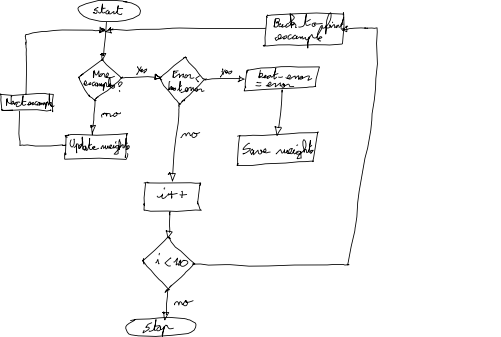 start
Back to first
example
More
example?
yes
Error <
best error
yes
best error
= error
Next example
no
Update weights
no
Save weights
i++
i < 100
no
stop